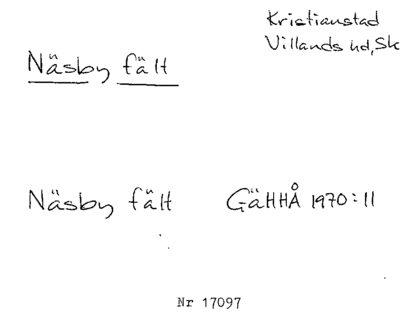 Kristianstad
Villands hd, Sk
Näsby fält
Näsby fält GäHHÅ 1970:11
Nr 17097